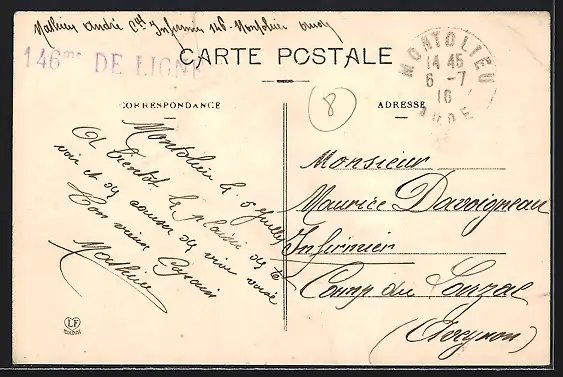 Mathieu André Cel Infirmier 146 Montolieu Aude
146me DE LIGNE
CARTE POSTALE
MONTOLIEU
14 45
6 - 7
16
AUDE
CORRESPONDANCE
ADRESSE
8
Montolieu le 5 Juillet
A bientôt le plaisir de te
voir et de causer de vive voix
Ton vieux Copain
Mathieu
Monsieur
Maurice Davoigneau
Infirmier
Camp du Larzac
(Aveyron)
LF